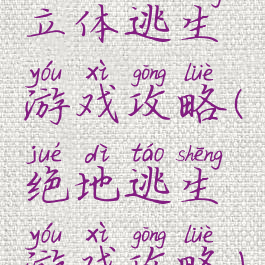 立体逃生
yóu xì gōng lüè
游戏攻略(
jué dì táo shēng
绝地逃生
yóu xì gōng lüè
游戏攻略)